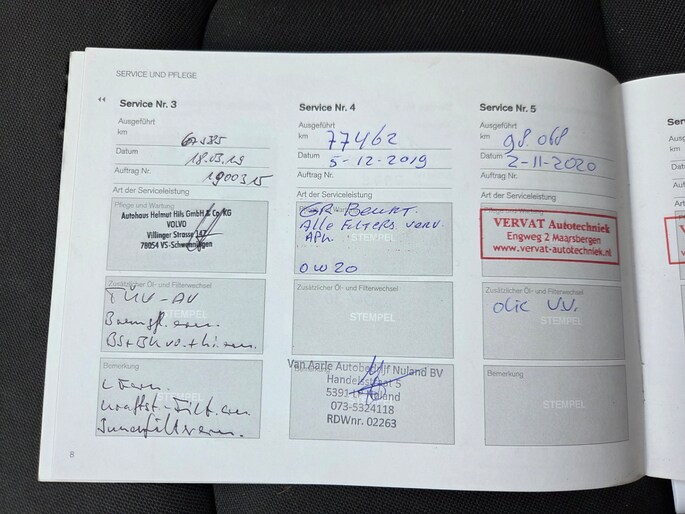 SERVICE UND PFLEGE
Service Nr. 3
Ausgeführt
km
Datum 18.03.19
Auftrag Nr. 1900315
Art der Serviceleistung
Pflege und Wartung
Autohaus Helmut Hils GmbH & Co. KG
VOLVO
Villinger Strasse
78054 VS-Schwenningen
Zusätzlicher Öl- und Filterwechsel
STEMPEL
TÜV-AU
Bremsfl. ern.
Bemerkung
Innenfilter ern.
8
Service Nr. 4
Ausgeführt
km 77462
Datum 5-12-2019
Auftrag Nr.
Art der Serviceleistung
Pflege und Wartung
GR Beurt.
Alle Filters verv.
APK.
STEMPEL
0W20
Zusätzlicher Öl- und Filterwechsel
STEMPEL
Bemerkung
Van Aarle Autobedrijf Nuland BV
Handelsstraat 5
5391 Nuland
073-5324118
RDWnr. 02263
Service Nr. 5
Ausgeführt
km 98.068
Datum 2-11-2020
Auftrag Nr.
Art der Serviceleistung
Pflege und Wartung
VERVAT Autotechniek
Engweg 2 Maarsbergen
www.vervat-autotechniek.nl
Zusätzlicher Öl- und Filterwechsel
olie VV.
STEMPEL
Bemerkung
STEMPEL